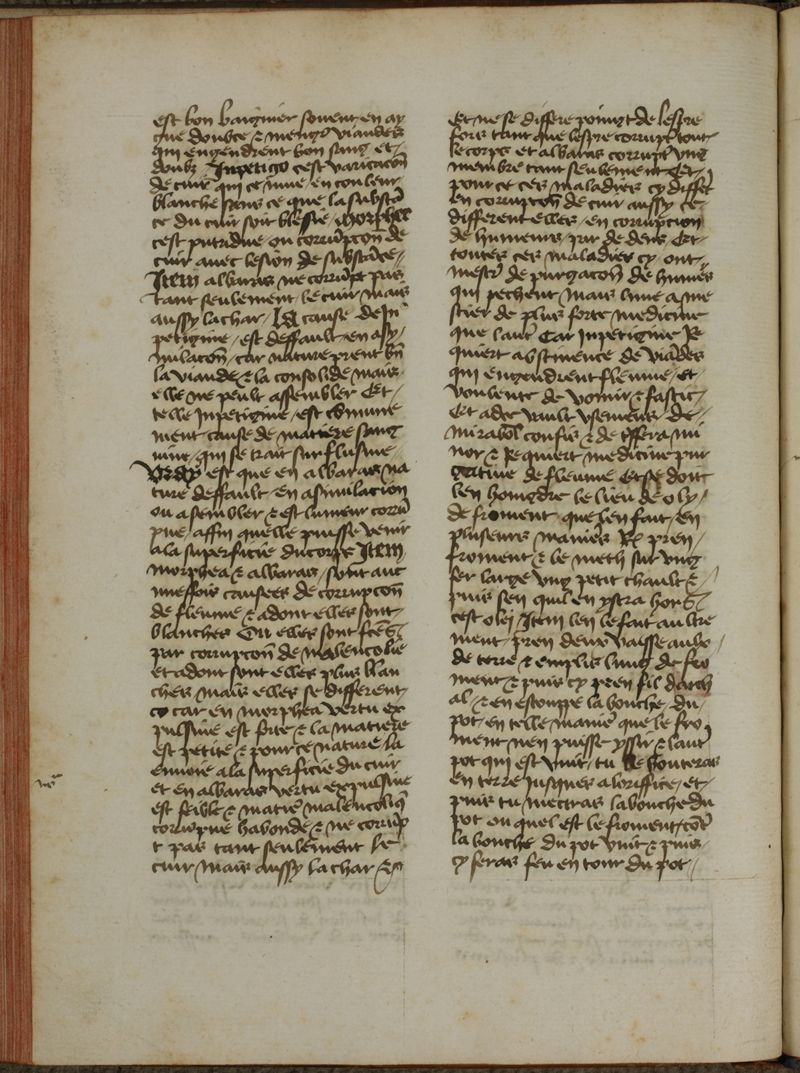 est bon baignier souent en ay
gue doulce & mengr viandes
qui engendrent bon sang et
doulz Inpetigo cest variacion
de cuir qui ce mue en couleur
blanche sans ce que la substā
ce du cuir soit blessie morphee
cest putridine ou corrūpcon de
cuir auec lesion de substāce
Item albaras ne corrūpt pas
tant seulement le cuir mais
aussy la char La cause de in
petigine est deffault en assy
milacon car nature prent bn̄
la viande & la consolide mais
elle ne peult assembler Et
telle inpetigine est cōmune
ment cause de matiere sang
uine qui se trait sur fleusme
Vray est que en albaras na
ture deffault en asimilacion
ou asembler & est lumeur corrū
pue affin quelle puisse venir
a la superficie du corps Item
morphea & albaras sont auc
uneffois causees de corrupcon
de fleume & adont elles sont
blanches Ou elles sont
par corrupcon de melencolie
et adont sont elles plus blan
ches mais elles se different
car en morphea vertu ex
pulsiue est forte & la matiere
est petite & pour ce nature la
enuoie a la superficie du cuir
et en albaras vertu expulsiue
est feible & matie malencoliq
corrūpue habonde & ne corrūp
t pas tant seulement le
cuir mais aussy la char &c
Et ne se differe poingt de lespre
fors tant que lespre corrupt tout
le corps et albaras corrupt vng
membre tant seulement Et
pour ce ces maladies cy differēt
en corrupcon de cuir aussy ce
different elles en corrupcion
de humeurs par dedens Et
toutes ces maladies cy ont
mestr de purgacon de humeᵉs
qui pechent mais lune a me
stier de plus forte medicine
que lautr Car inpetigine re
quiert abstinence de viādes
qui engendrent fleume et
voulente de vomir & fastie
Et adec vault vsement de
mirabol confis & de tiffera mi
nor & requiert medicine pur
gatiue de fleume Et se doit
len hoingdre le lieu de oly
de froment que len fait en
plusieurs manieres R pren
froment & le meth sur vng
fer large vng petit chault &
puis sen quil en ystra hors
cest olej Item len le fait aultre
ment pren deux vaisseaulx
de terre & emplis lung de fro
ment & puis cy pren fil darch
al & en estouppe la bouche du
pot en telle manie que le fro
ment nen puisse yssir & lautr
pot qui est vuit tu le bouteras
en terre jusques a lorifice et
puis tu mectras la bouche du
pot ou quel est le froment cōtr
la bouche du pot vuit & puis
cy feras feu en tour du pot